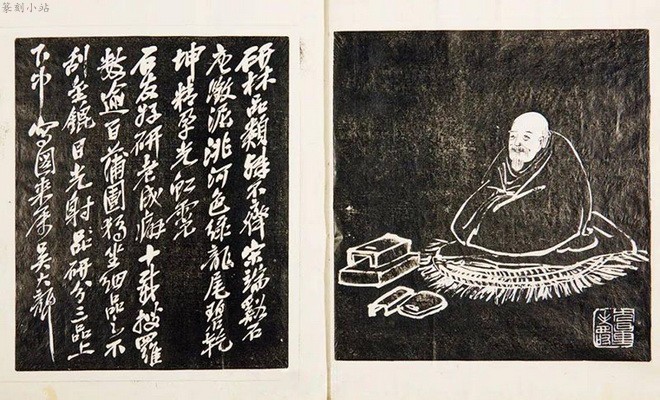 篆刻小站
研林品類殊不齊宋端谿石
唐澂泥洮河色綠龍尾碧乾
坤精孕光虹霓
石友好研老成癖十載搜羅
數逾百蒲團獨坐細品之不
刮金鎞目光射品研分三品上
下中寫圖來索吳大聾